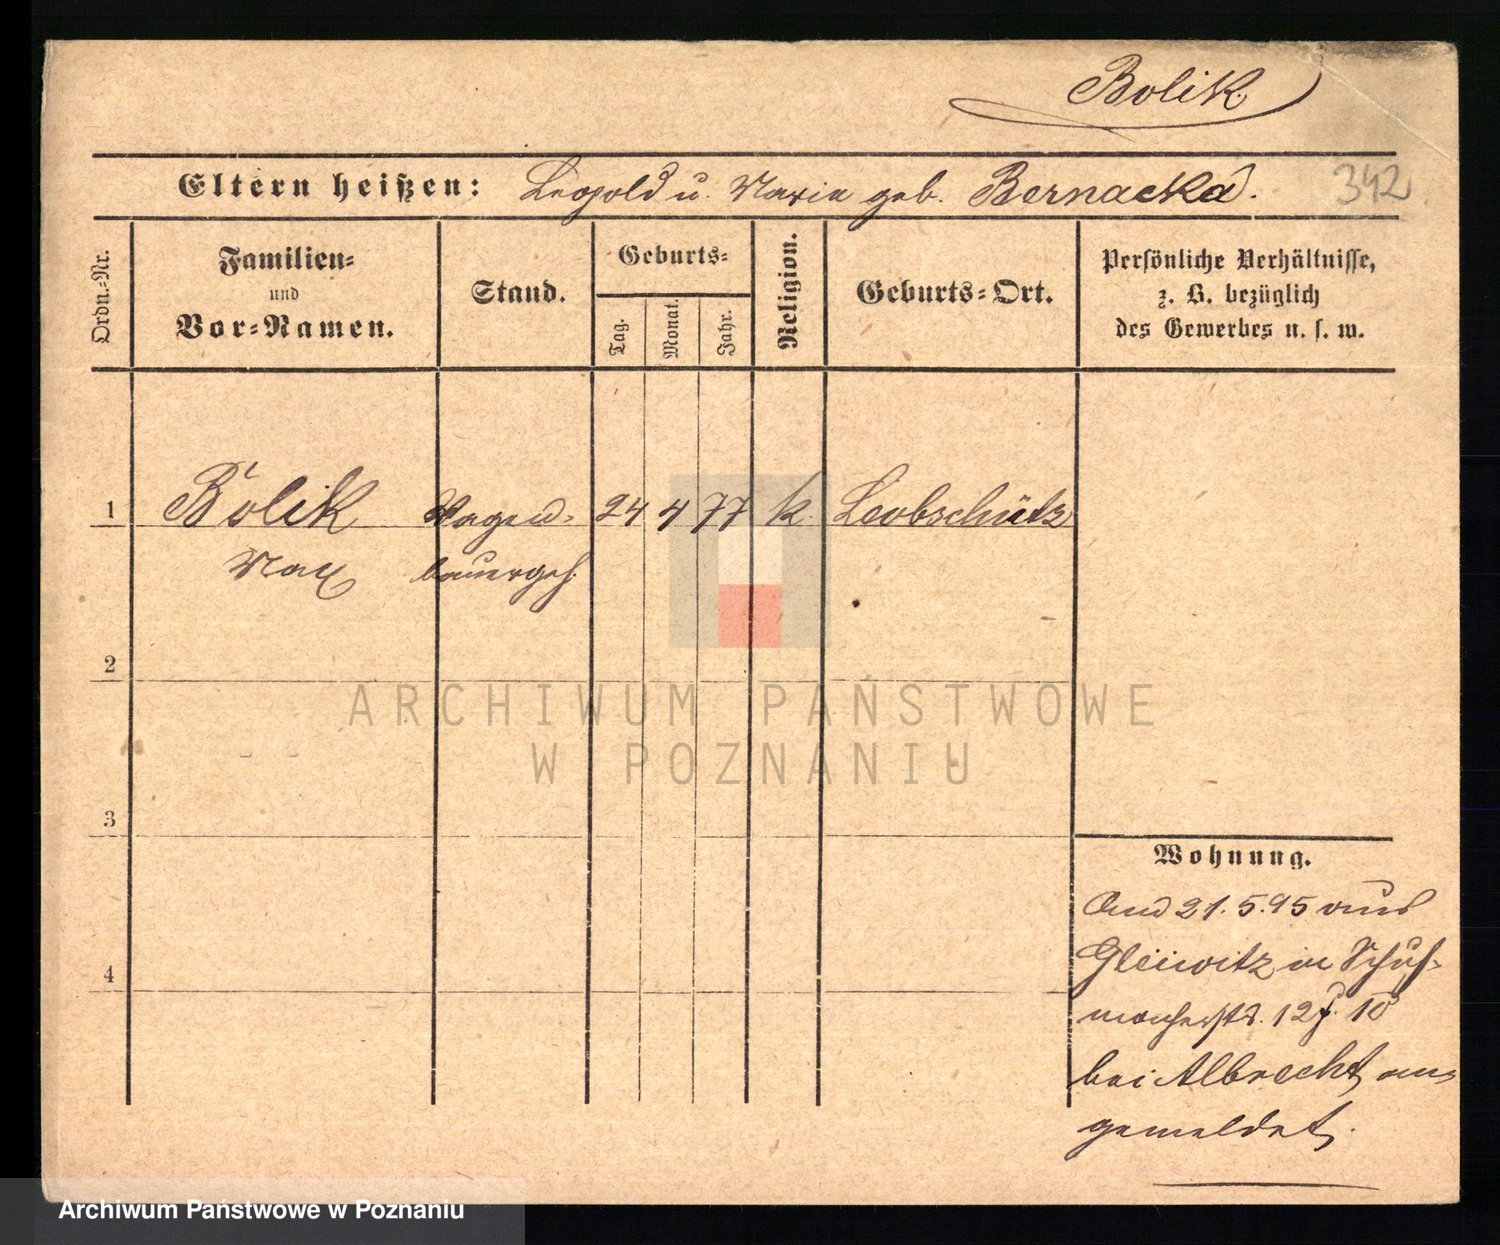 Bolik
Eltern heißen: Leopold u. Marie geb. Bernacka.
342
Ordn.-Nr.
Familien-
und
Vor-Namen.
Stand.
Geburts-
Tag.
Monat.
Jahr.
Religion.
Geburts-Ort.
Persönliche Verhältnisse,
z. B. bezüglich
des Gewerbes u. s. w.
1 Bolik Wagen- 24 4 77 k. Leobschütz
Max bauergeh.
2
3
4
Wohnung.
21.5.95 aus
Gleiwitz in Schuh-
macherstr. 12
bei Albrecht an-
gemeldet.
ARCHIWUM PAŃSTWOWE
W POZNANIU
Archiwum Państwowe w Poznaniu